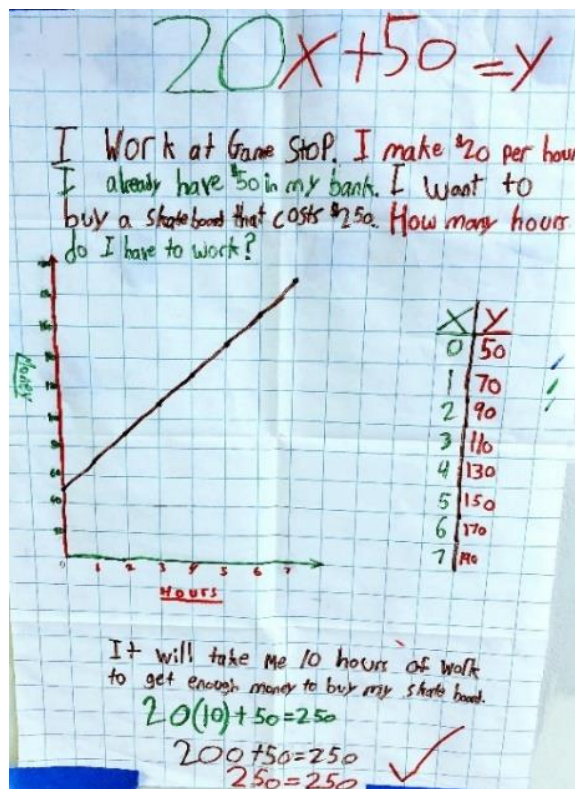 20x+50=y
I Work at Game Stop. I make $20 per hour
I already have $50 in my bank. I want to
buy a skateboard that costs $250. How many hours
do I have to work?
Money
X Y
0 50
1 70
2 90
3 110
4 130
5 150
6 170
7 190
0 1 2 3 4 5 6 7
Hours
It will take me 10 hours of work
to get enough money to buy my skate board.
20(10)+50=250
200+50=250
250=250